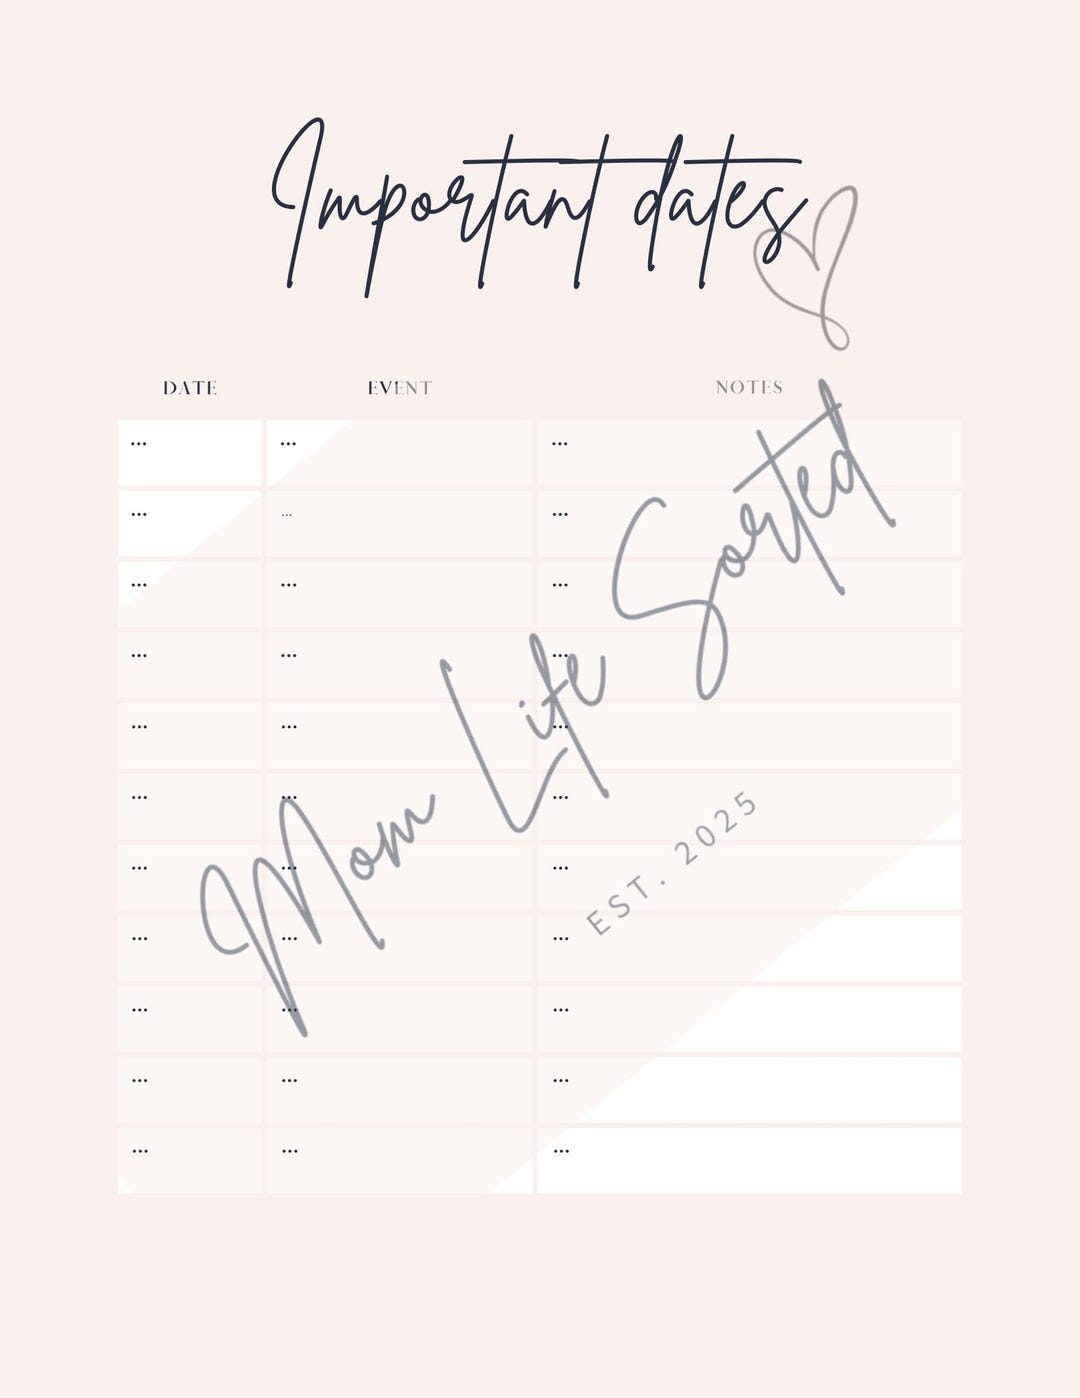 Important dates
DATE EVENT NOTES
... ... ...
... ... ...
... ... ...
... ... ...
... ... ...
... ... ...
... ... ...
... ... ...
... ... ...
... ... ...
... ... ...
Mom Life Sorted
EST. 2025